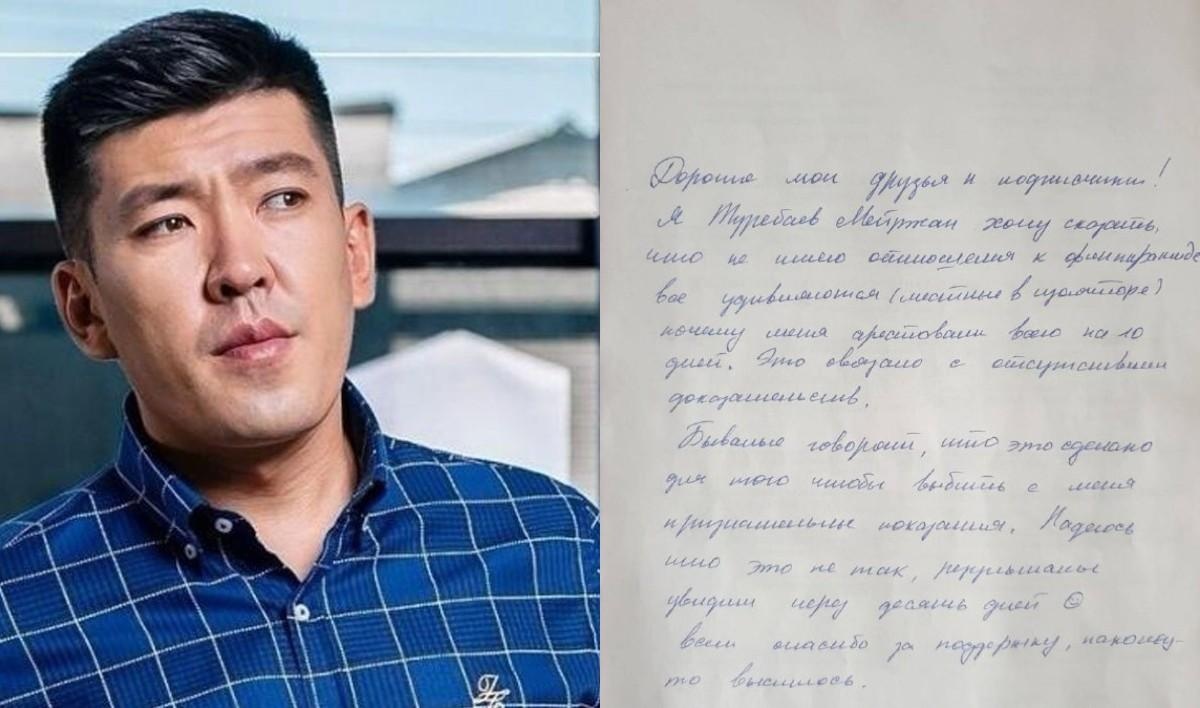 Дорогие мои друзья и подписчики!
Я Туребаев Мейржан хочу сказать,
что не имею отношения к финпирамиде
все удивляются (местные в изоляторе)
почему меня арестовали всего на 10
дней. Это связано с отсутствием
доказательств.
Бывалые говорят, что это сделано
для того чтобы выбить с меня
признательные показания. Надеюсь
что это не так, результаты
увидим через десять дней ☺
всем спасибо за поддержку, наконец-
то выспилось.